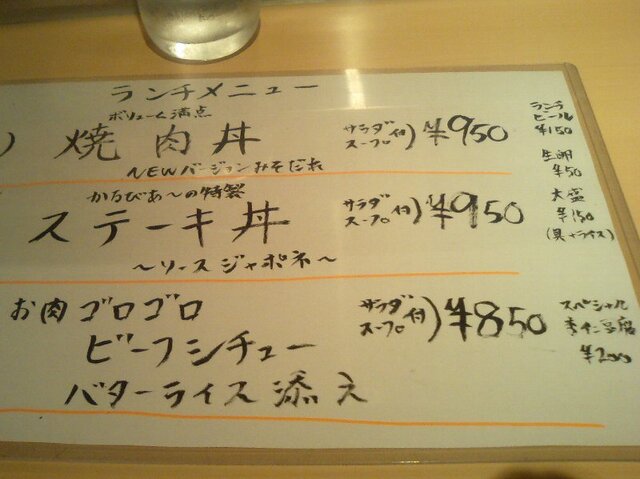 ランチメニュー
ボリューム満点
焼肉丼
サラダ
スープ付) ¥950
NEWバージョンみそだれ
かるびあ〜の特製
ステーキ丼
サラダ
スープ付) ¥950
〜ソースジャポネ〜
お肉ゴロゴロ
ビーフシチュー
バターライス添え
サラダ
スープ付) ¥850
ランチ
ビール
¥150
生卵
¥50
大盛
¥150
(具+ライス)
スペシャル
杏仁豆腐
¥200